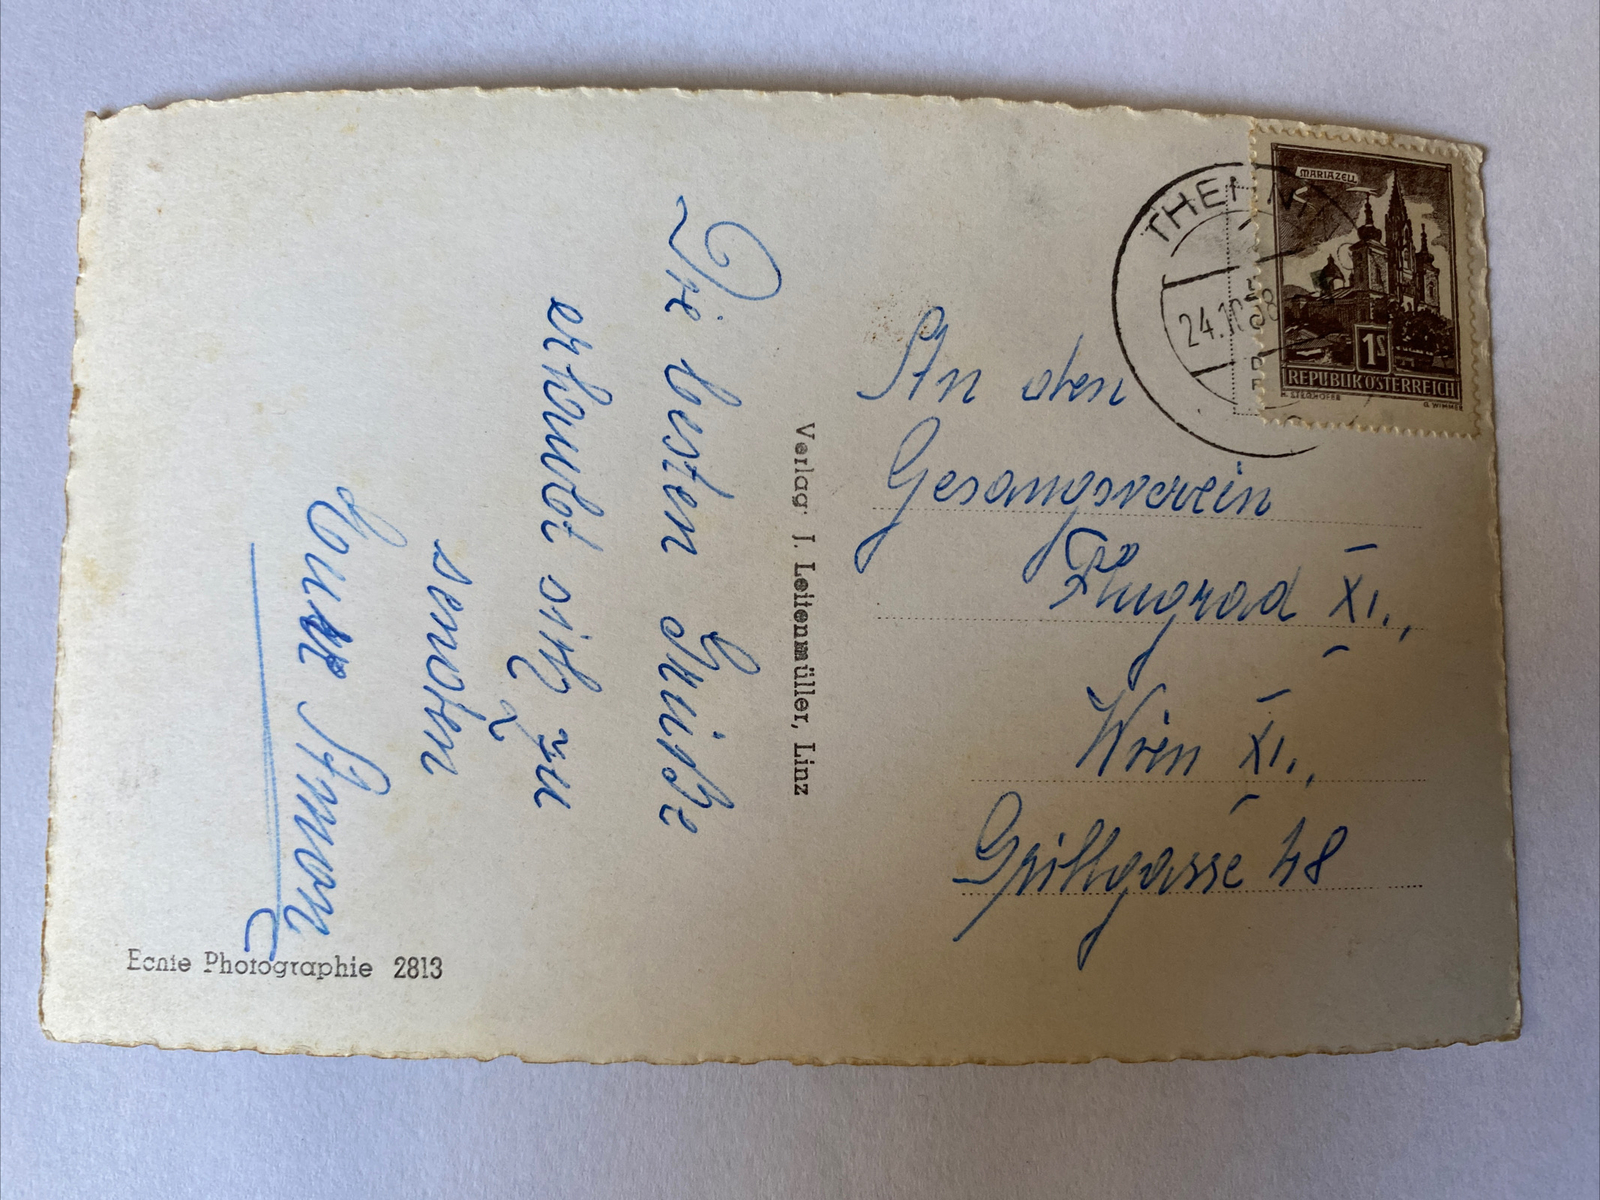 Die besten Grüße
erlaubt sich zu
senden
Simon
Verlag J. Leitenmüller, Linz
Echte Photographie 2813
An den
Gesangsverein
XI.,
Wien XI.,
Grillgasse 48
24.10.58
MARIAZELL
1S
REPUBLIK ÖSTERREICH
G. WIMMER